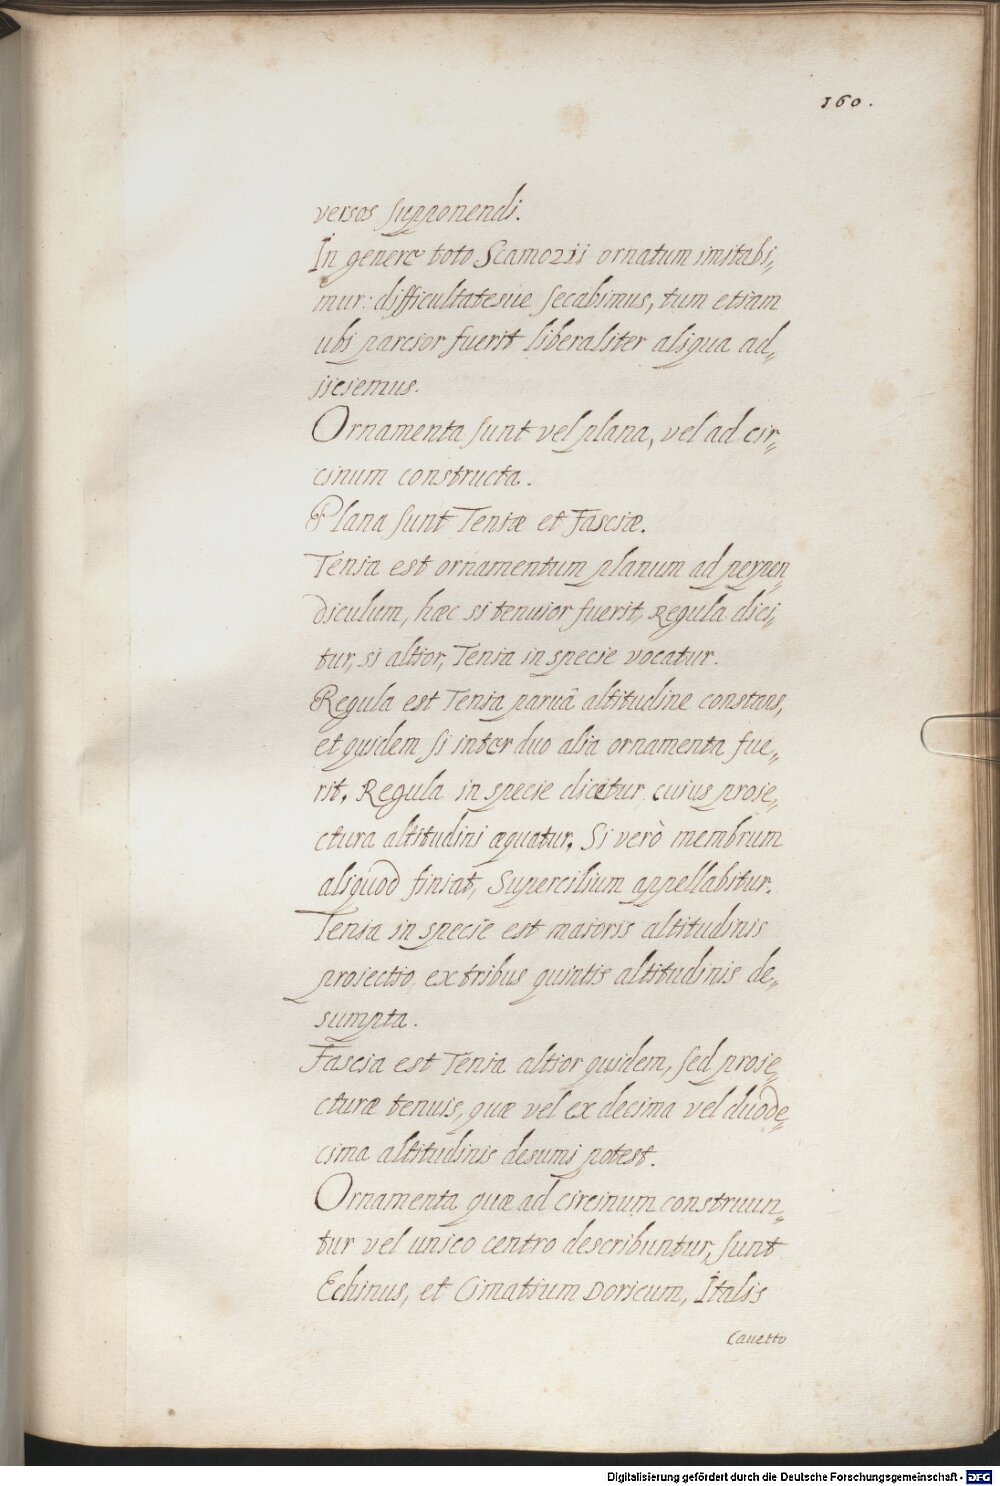 160.
versos supponendi.
In genere toto Scamozii ornatum imitabi„
mur: difficultatesue secabimus, tum etiam
ubi parcior fuerit liberaliter aliqua ad„
jiciemus.
Ornamenta sunt vel plana, vel ad cir„
cinum constructa.
Plana sunt Teniæ et Fasciæ.
Tenia est ornamentum planum ad perpen„
diculum, hæc si tenuior fuerit, Regula dici„
tur, si altior, Tenia in specie vocatur.
Regula est Tenia paruâ altitudine constans,
et quidem si inter duo alia ornamenta fue„
rit. Regula in specie dicitur, cuius proie„
ctura altitudini æquatur. Si verò membrum
aliquod finiat, Supercilium appellabitur.
Tenia in specie est maioris altitudinis
proiectio ex tribus quintis altitudinis de„
sumpta.
Fascia est Tenia altior quidem, sed proie„
cturæ tenuis, quæ vel ex decima vel duode„
cima altitudinis desumi potest.
Ornamenta quæ ad circinum construun„
tur vel unico centro describuntur, sunt
Echinus, et Cimatium Doricum, Italis
Cauetto
Digitalisierung gefördert durch die Deutsche Forschungsgemeinschaft - DFG